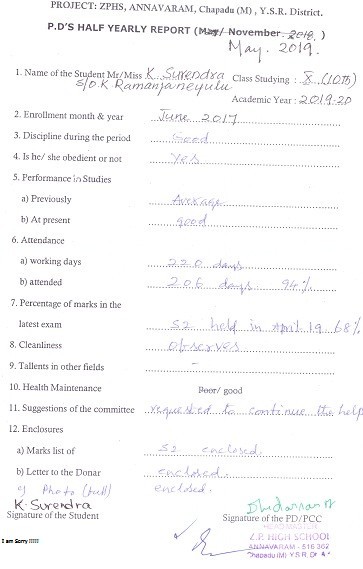 PROJECT: ZPHS, ANNAVARAM, Chapadu (M) , Y.S.R. District.
P.D'S HALF YEARLY REPORT (May/ November 2018. )
May. 2019.
1. Name of the Student Mr/Miss K Surendra Class Studying : X (10th)
S/O.K Ramanjaneyulu
Academic Year : 2019-20
2. Enrollment month & year June 2017
3. Discipline during the period Good
4. Is he/ she obedient or not Yes
5. Performance in Studies
a) Previously Average
b) At present good
6. Attendance
a) working days 220 days
b) attended 206 days. 94%
7. Percentage of marks in the
latest exam S2 held in April 19 68%
8. Cleanliness observes
9. Tallents in other fields -
10. Health Maintenance Poor/ good
11. Suggestions of the committee requested to continue the help
12. Enclosures
a) Marks list of S2 enclosed.
b) Letter to the Donar enclosed.
c) Photo (full) enclosed.
K. Surendra
Signature of the Student Signature of the PD/PCC
HEADMASTER
Z.P. HIGH SCHOOL
ANNAVARAM - 516 362
Chapadu (M) Y.S.R. Dt
I am Sorry !!!!!